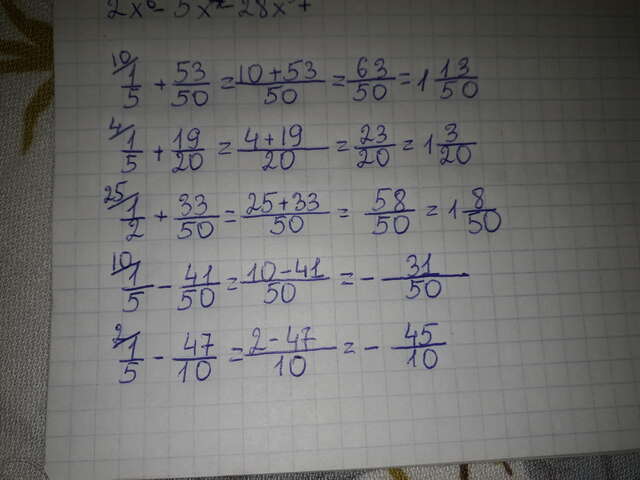 2x⁶ - 5x⁴ - 28x³ +
10/ 1/5 + 53/50 = (10+53)/50 = 63/50 = 1 13/50
4/ 1/5 + 19/20 = (4+19)/20 = 23/20 = 1 3/20
25/ 1/2 + 33/50 = (25+33)/50 = 58/50 = 1 8/50
10/ 1/5 - 41/50 = (10-41)/50 = - 31/50
2/ 1/5 - 47/10 = (2-47)/10 = - 45/10